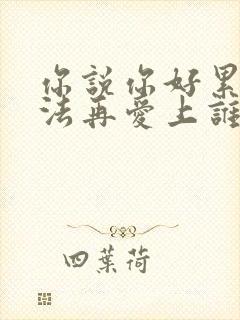 你說你好累
法再愛上誰
四葉荷